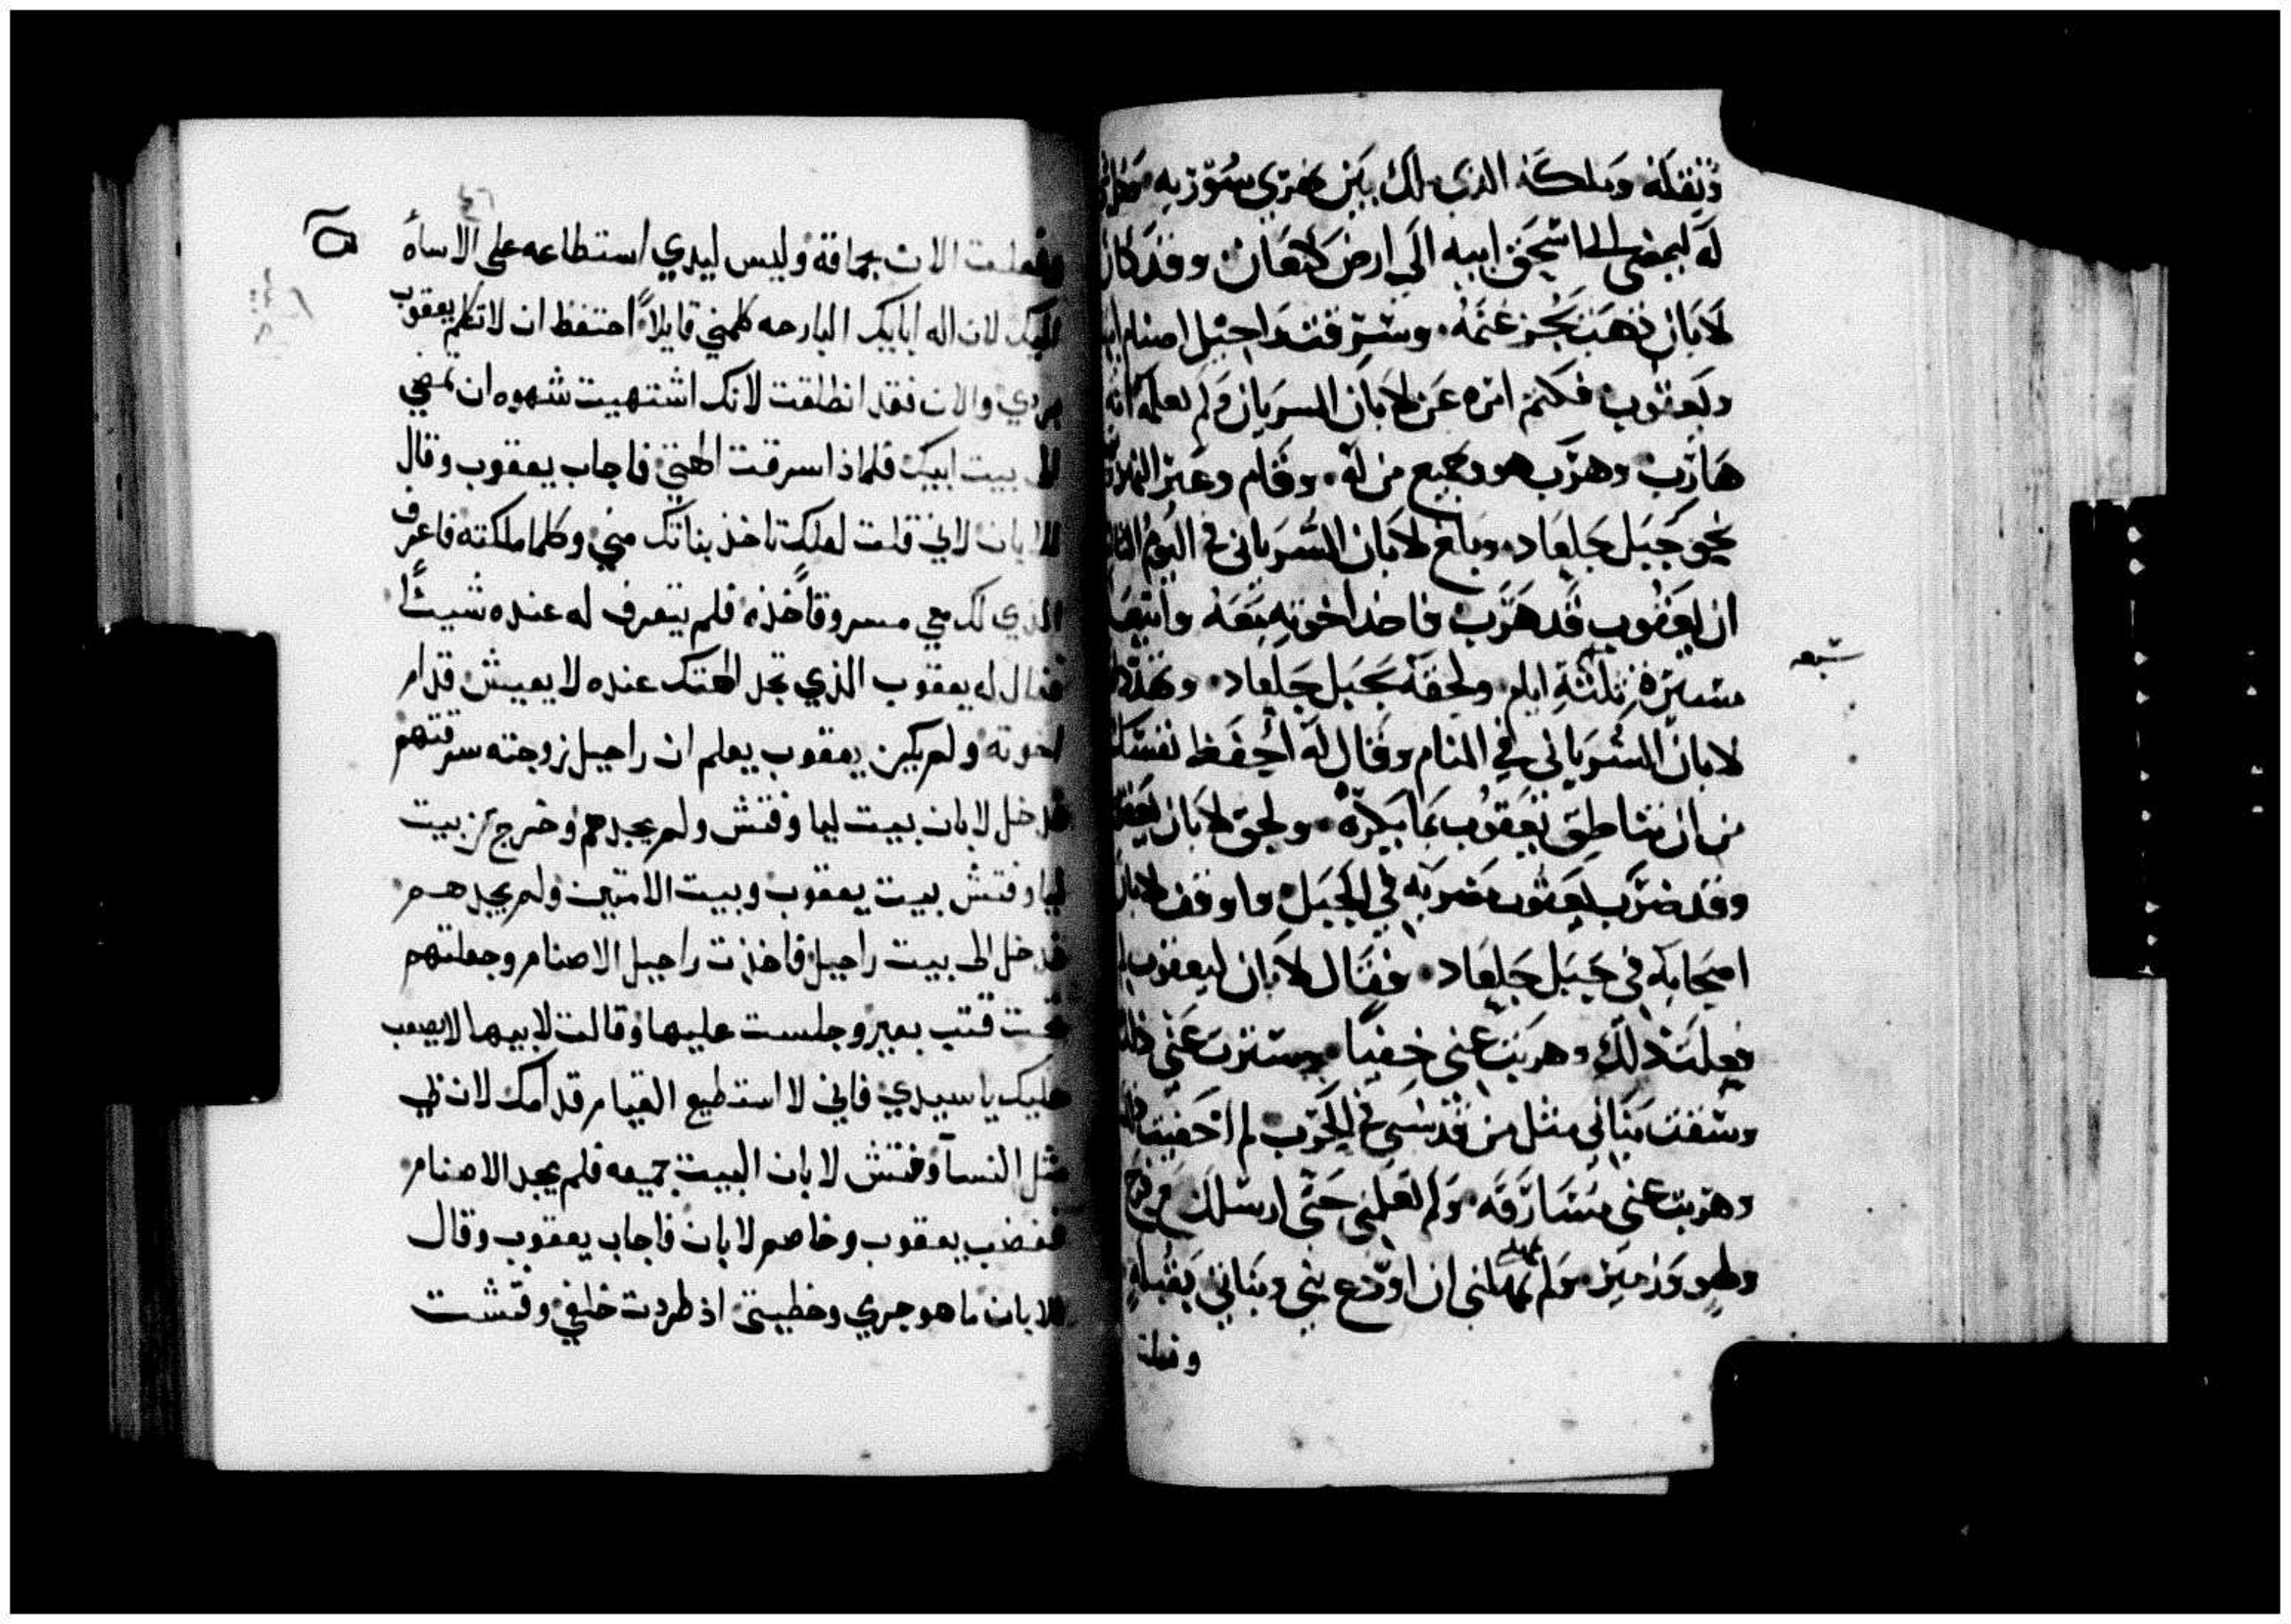 ونقله وملكه الذي ملك بين نهري سورية
له ليمضي الى اسحق ابيه الى ارض كنعان وقد كان
لابان ذهب يجز غنمه وسرقت راحيل اصنام
ويعقوب فكتم امره عن لابان السرياني ولم يعلمه انه
هارب وهرب هو وجميع من له وقام وعبر النهر
نحو جبل جلعاد وبلغ لابان السرياني في اليوم
ان يعقوب قد هرب فاخذ اخوته معه
مسيرة ثلثة ايام ولحقه بجبل جلعاد
سبعه
لابان السرياني في المنام وقال له احفظ نفسك
من ان تناطق يعقوب بما يكره ولحق لابان
وقد ضرب يعقوب مضربه في الجبل واوقف لابان
اصحابه في جبل جلعاد فقال لابان ليعقوب
فعلت ذلك وهربت عني خفيا وسترت عني
وسقت بناتي مثل من قد سبي في الحرب
وهربت عني مسارقه ولم تعلمني حتى ارسلك
ولم تمهلني ان اودع بني وبناتي بقبله
وفعلت
وفعلت الان بجماقة وليس ليدي استطاعه على الاساة
اليك لان اله ابايك البارحه كلمني قايلاً احتفظ ان لا تكلم يعقوب
بردي والان فقد انطلقت لانك اشتهيت شهوه ان تمضي
الى بيت ابيك فلماذا سرقت الهتي فاجاب يعقوب وقال
للابان لاني قلت لعلك تاخذ بناتك مني وكلما ملكته فاعرف
الذي لك معي مسروقاً خذه فلم يتعرف له عنده شيئاً
فقال له يعقوب الذي تجد الهتك عنده لا يعيش قدام
اخوته ولم يكن يعقوب يعلم ان راحيل زوجته سرقتهم
فدخل لابان بيت ليا وفتش ولم يجدهم وخرج من بيت
ليا وفتش بيت يعقوب وبيت الامتين ولم يجدهم
فدخل الى بيت راحيل فاخذت راحيل الاصنام وجعلتهم
تحت قتب بعير وجلست عليها وقالت لابيها لا يصعب
عليك يا سيدي فاني لا استطيع القيام قدامك لان لي
مثل النسآ وفتش لابان البيت جميعه فلم يجد الاصنام
فغضب يعقوب وخاصم لابان فاجاب يعقوب وقال
للابان ما هو جرمي وخطيتي اذ طردت خلفي وفتشت